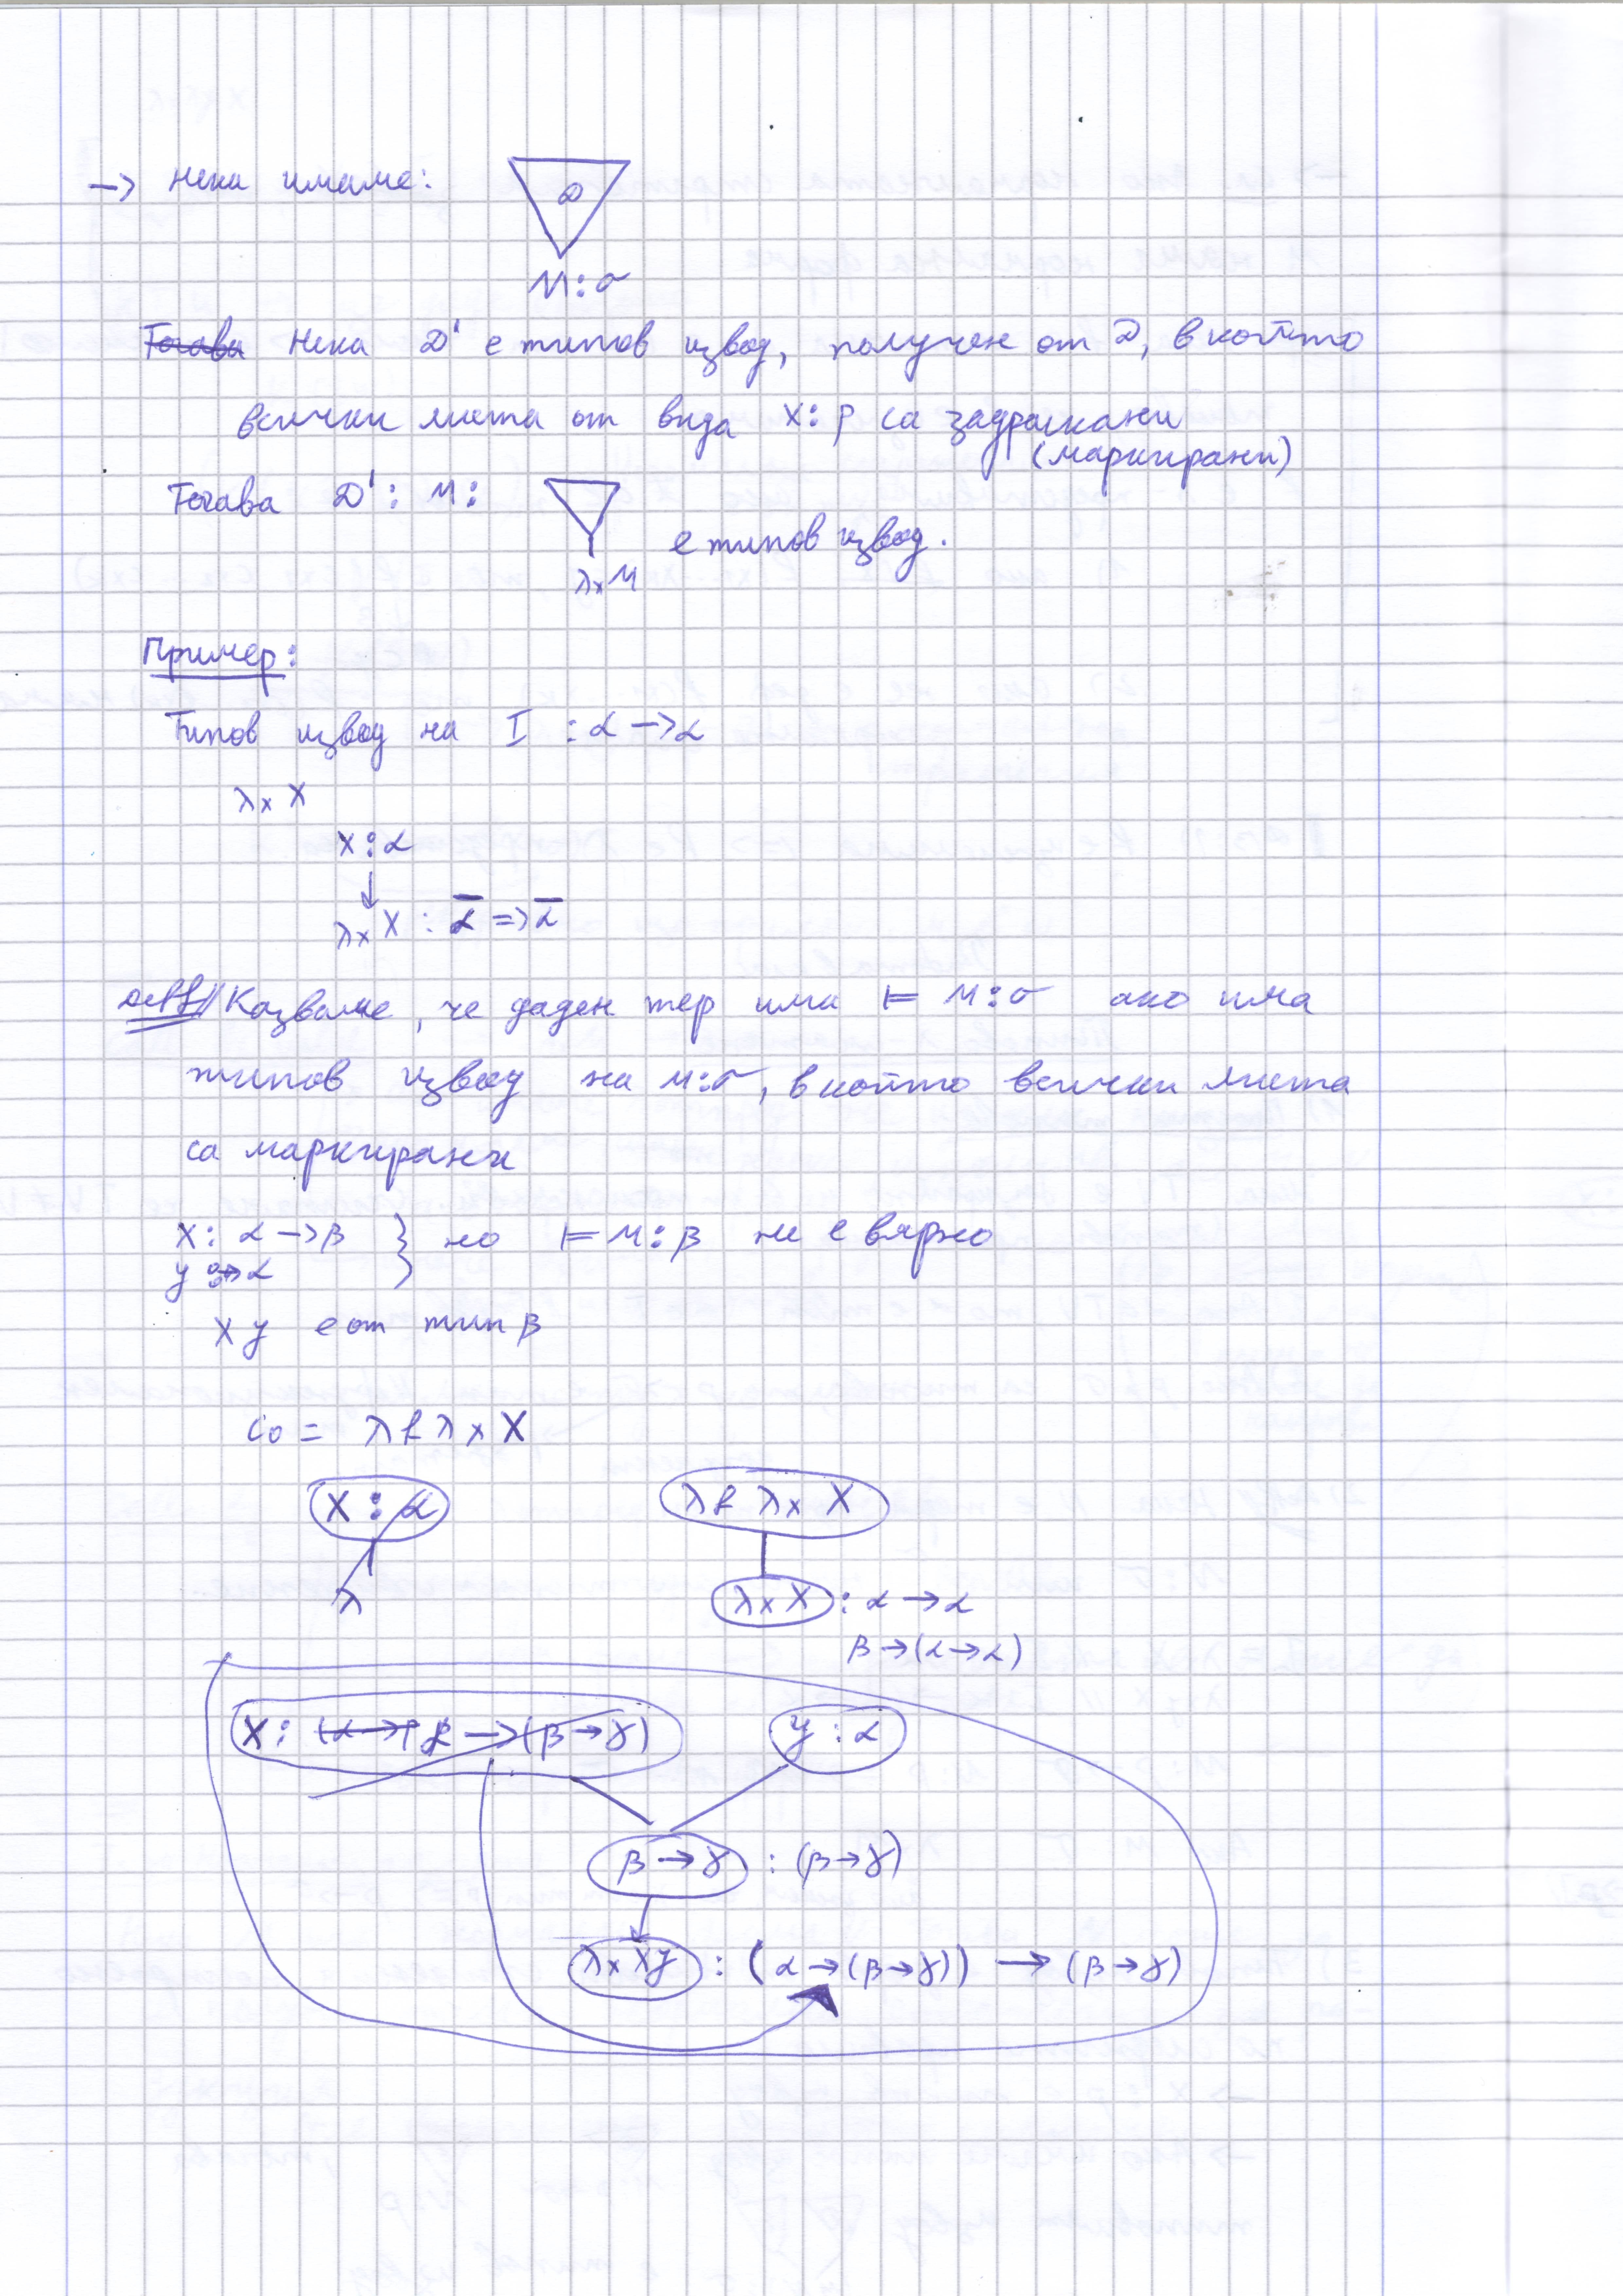 → Нека имаме:
D
M:σ
Тогава Нека D' е типов извод, получен от D, в който
всички листа от вида x:ρ са задраскани
(маркирани)
Тогава D': M:
е типов извод.
λx M
Пример:
Типов извод на I : α → α
λx x
x:α
↓
λx x : α̅ => α̅
Деф// Казваме, че даден тер има ⊨ M:σ ако има
типов извод на M:σ, в който всички листа
са маркирани
x: α → β } но ⊨ M:β не е вярно
y: α
xy е от тип β
c₀ = λf λx x
x : α
λ
λf λx x
λx x : α → α
β → (α → α)
x: α → (β → γ)
y : α
β → γ : (β → γ)
λx xy : (α → (β → γ)) → (β → γ)